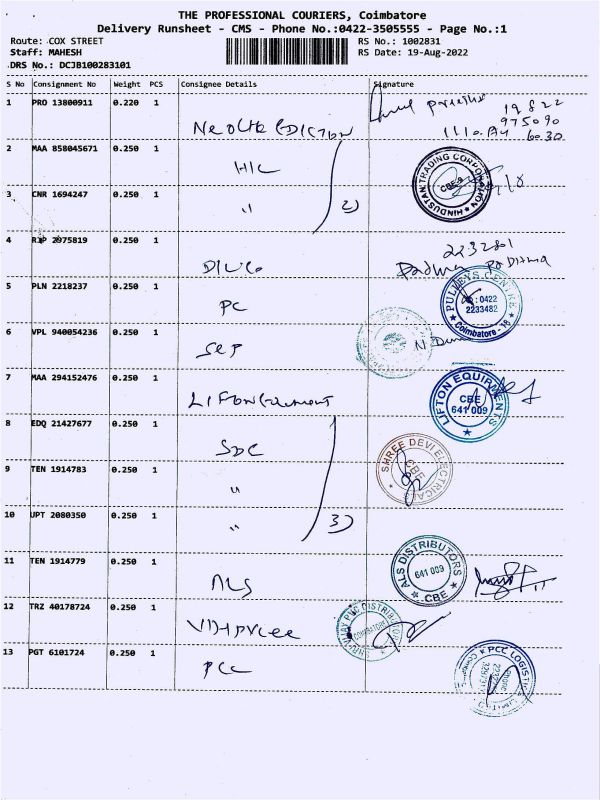 THE PROFESSIONAL COURIERS, Coimbatore
Delivery Runsheet - CMS - Phone No.:0422-3505555 - Page No.:1
Route: COX STREET RS No.: 1002831
Staff: MAHESH RS Date: 19-Aug-2022
DRS No.: DCJB100283101
S No Consignment No Weight PCS Consignee Details Signature
1 PRO 13800911 0.220 1
19822
975090
2 MAA 858045671 0.250 1 HIC
HINDUSTAN TRADING CORPORATION CBE-9
3 CNR 1694247 0.250 1 " 2)
4 2975819 0.250 1
2232801
5 PLN 2218237 0.250 1 PC
PULLEYS CENTRE : 0422 2233482 Coimbatore - 18
6 VPL 940054236 0.250 1
7 MAA 294152476 0.250 1
LIFTON EQUIPMENTS CBE 641 009
8 EDQ 21427677 0.250 1 SDC
9 TEN 1914783 0.250 1 "
SHREE DEVI ELECTRICAL CBE
10 UPT 2080350 0.250 1 " 3)
11 TEN 1914779 0.250 1 ALS
ALS DISTRIBUTORS 641 009 CBE
12 TRZ 40178724 0.250 1
PVC DISTRIBUTORS COIMBATORE
13 PGT 6101724 0.250 1 PCC
PCC LOGISTICS